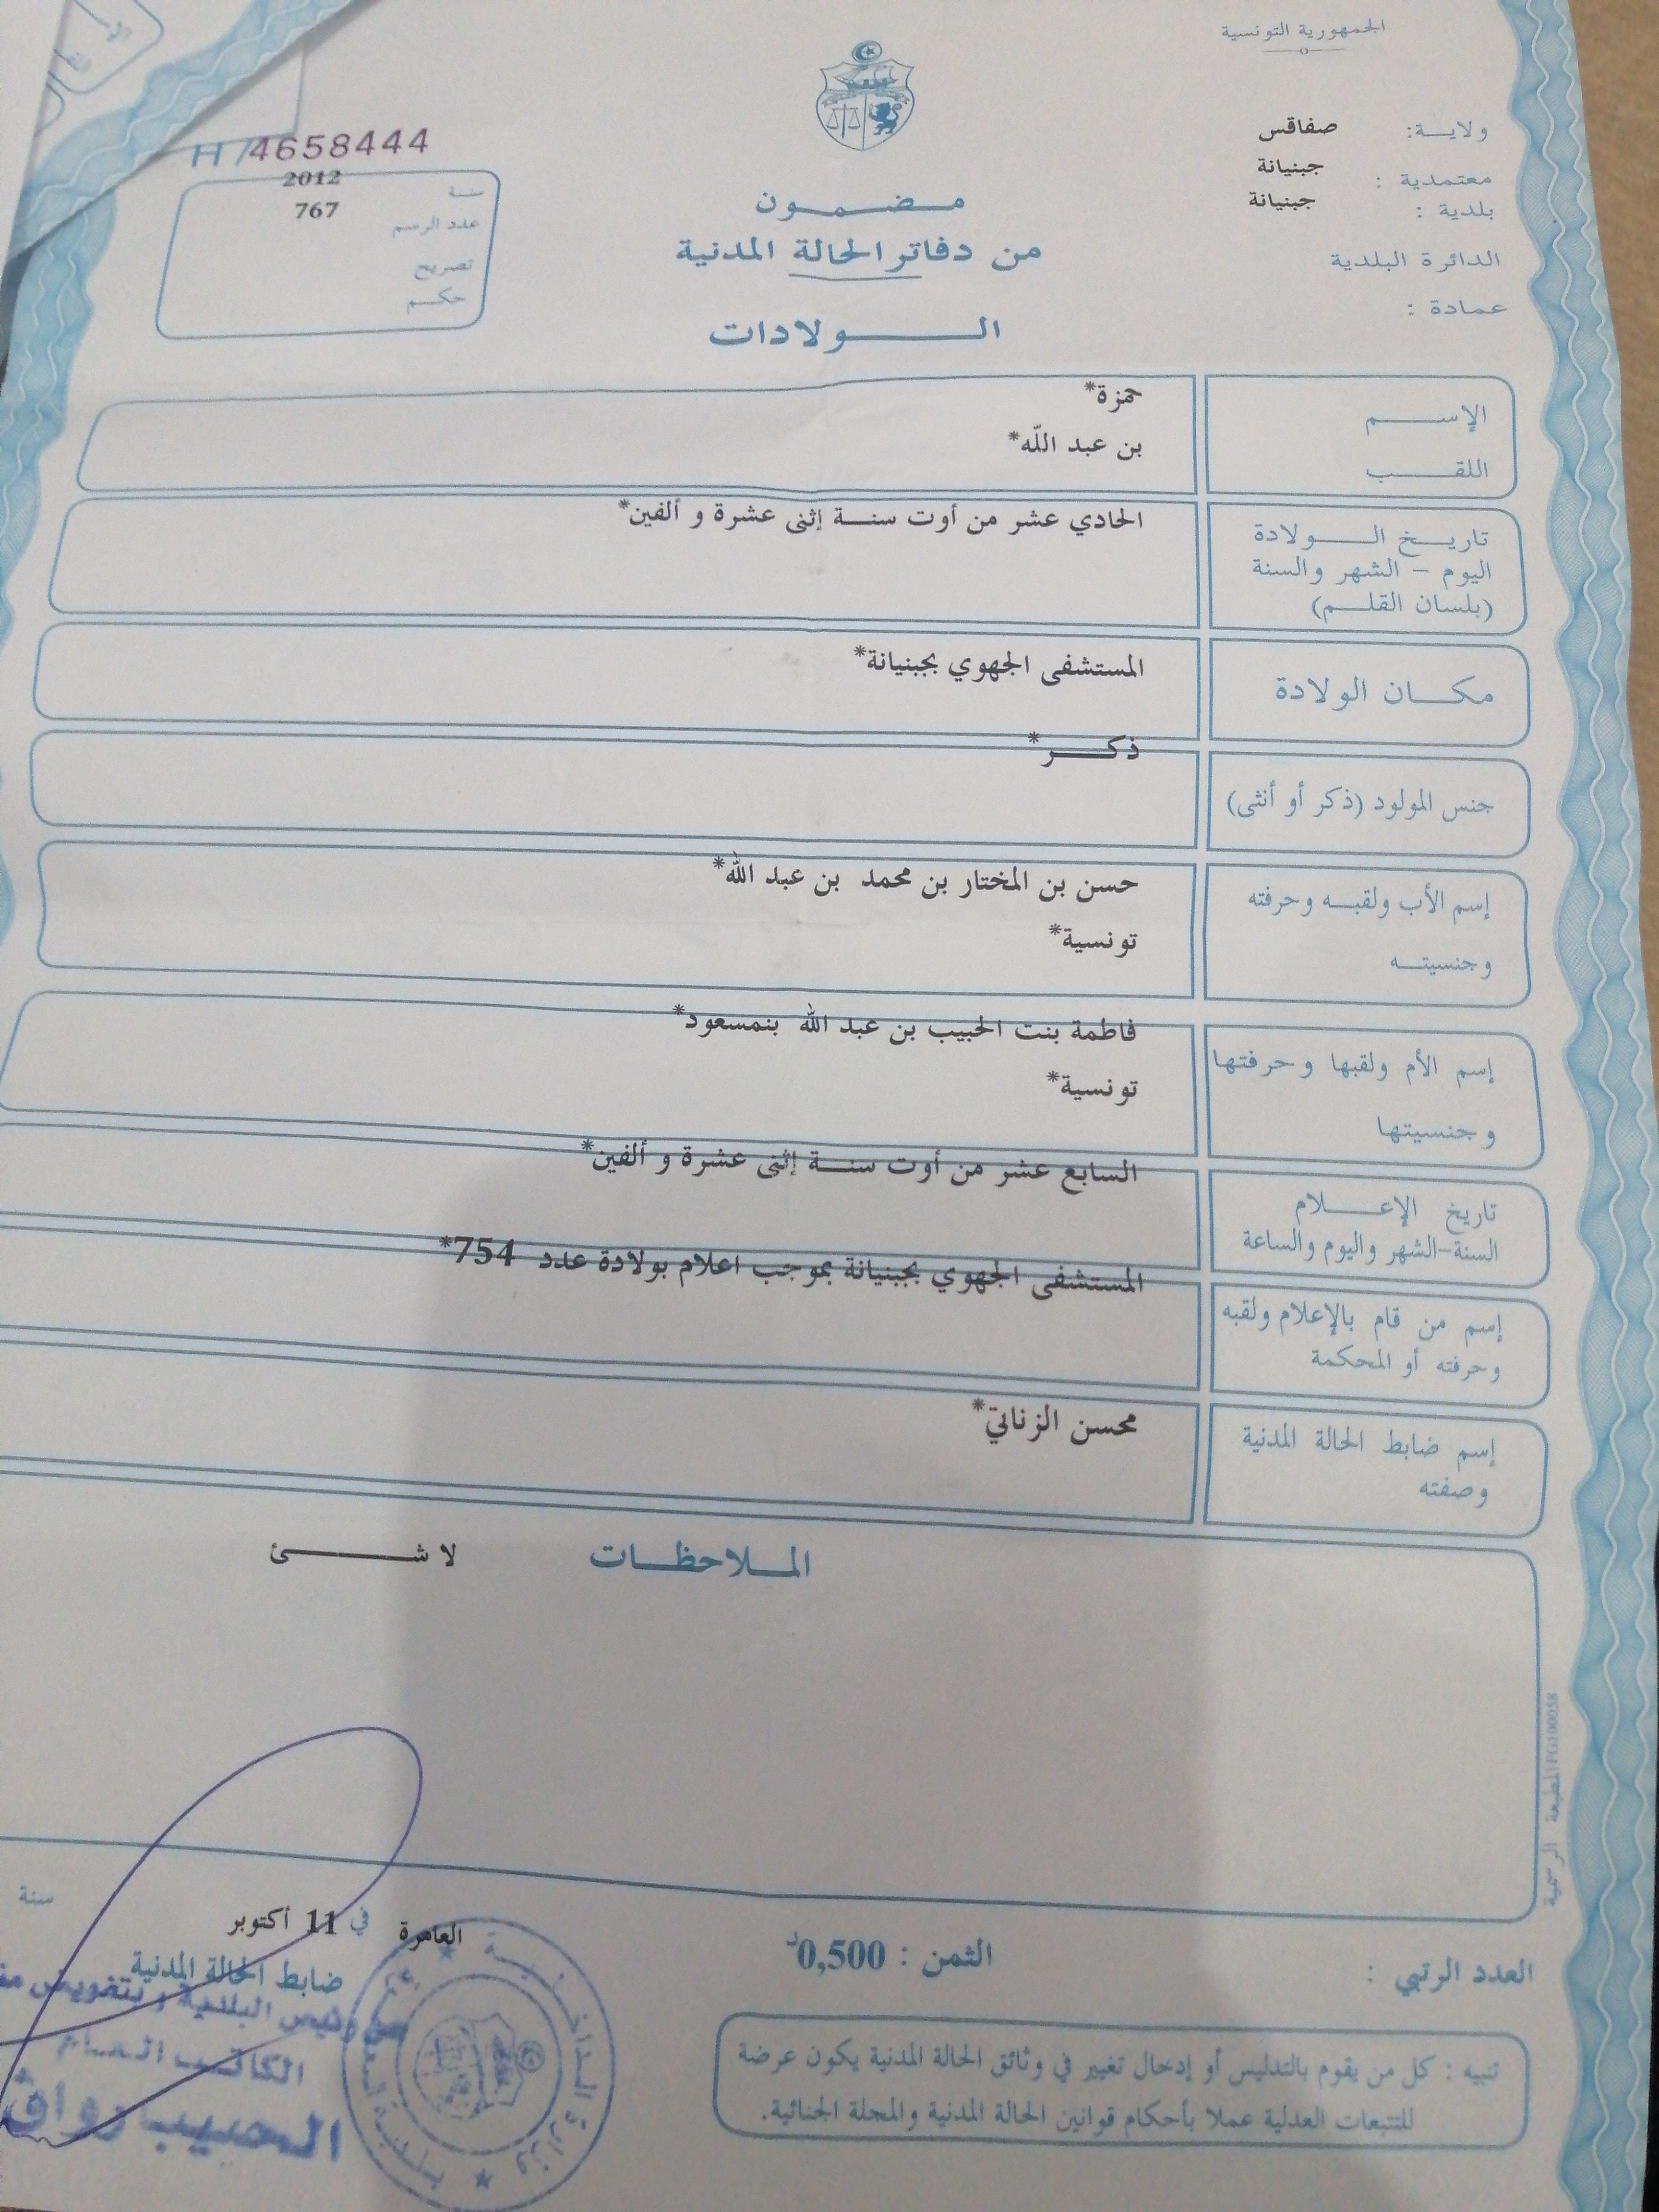 الجمهورية التونسية
ولايـة: صفاقس
معتمدية : جبنيانة
بلدية : جبنيانة
الدائرة البلدية
عمادة :
H/4658444
سنة 2012
عدد الرسم 767
تصريح
حكم
مضمون
من دفاتر الحالة المدنية
الولادات
الإسم حمزة*
اللقب بن عبد اللّه*
تاريخ الولادة
اليوم - الشهر والسنة
(بلسان القلم)
الحادي عشر من أوت سنة إثنى عشرة و ألفين*
مكان الولادة المستشفى الجهوي بجبنيانة*
جنس المولود (ذكر أو أنثى) ذكر*
إسم الأب ولقبه وحرفته حسن بن المختار بن محمد بن عبد الله*
وجنسيته تونسية*
إسم الأم ولقبها وحرفتها فاطمة بنت الحبيب بن عبد الله بنمسعود*
وجنسيتها تونسية*
تاريخ الإعلام
السنة-الشهر واليوم والساعة
السابع عشر من أوت سنة إثنى عشرة و ألفين*
إسم من قام بالإعلام ولقبه
وحرفته أو المحكمة
المستشفى الجهوي بجبنيانة بموجب اعلام بولادة عدد 754*
إسم ضابط الحالة المدنية
وصفته
محسن الزناتي*
الملاحظات لا شئ
المطبعة الرسمية FG100058
العدد الرتبي :
الثمن : 0,500د
العامرة في 11 أكتوبر سنة
ضابط الحالة المدنية
رئيس البلدية وبتفويض
الكاتب العام
تنبيه : كل من يقوم بالتدليس أو إدخال تغيير في وثائق الحالة المدنية يكون عرضة
للتتبعات العدلية عملا بأحكام قوانين الحالة المدنية والمجلة الجنائية.